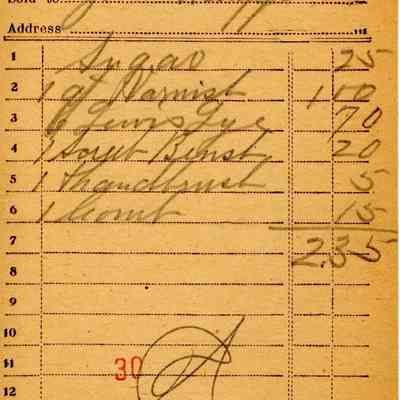 Sold to
Address
1 Sugar 25
2 1 qt Varnish 1 00
3 6 Lewis Lye 70
4 1 Brush 20
5 1 Handbrush 5
6 1 Comb 15
7 2.35
8
9
10
11 30
12